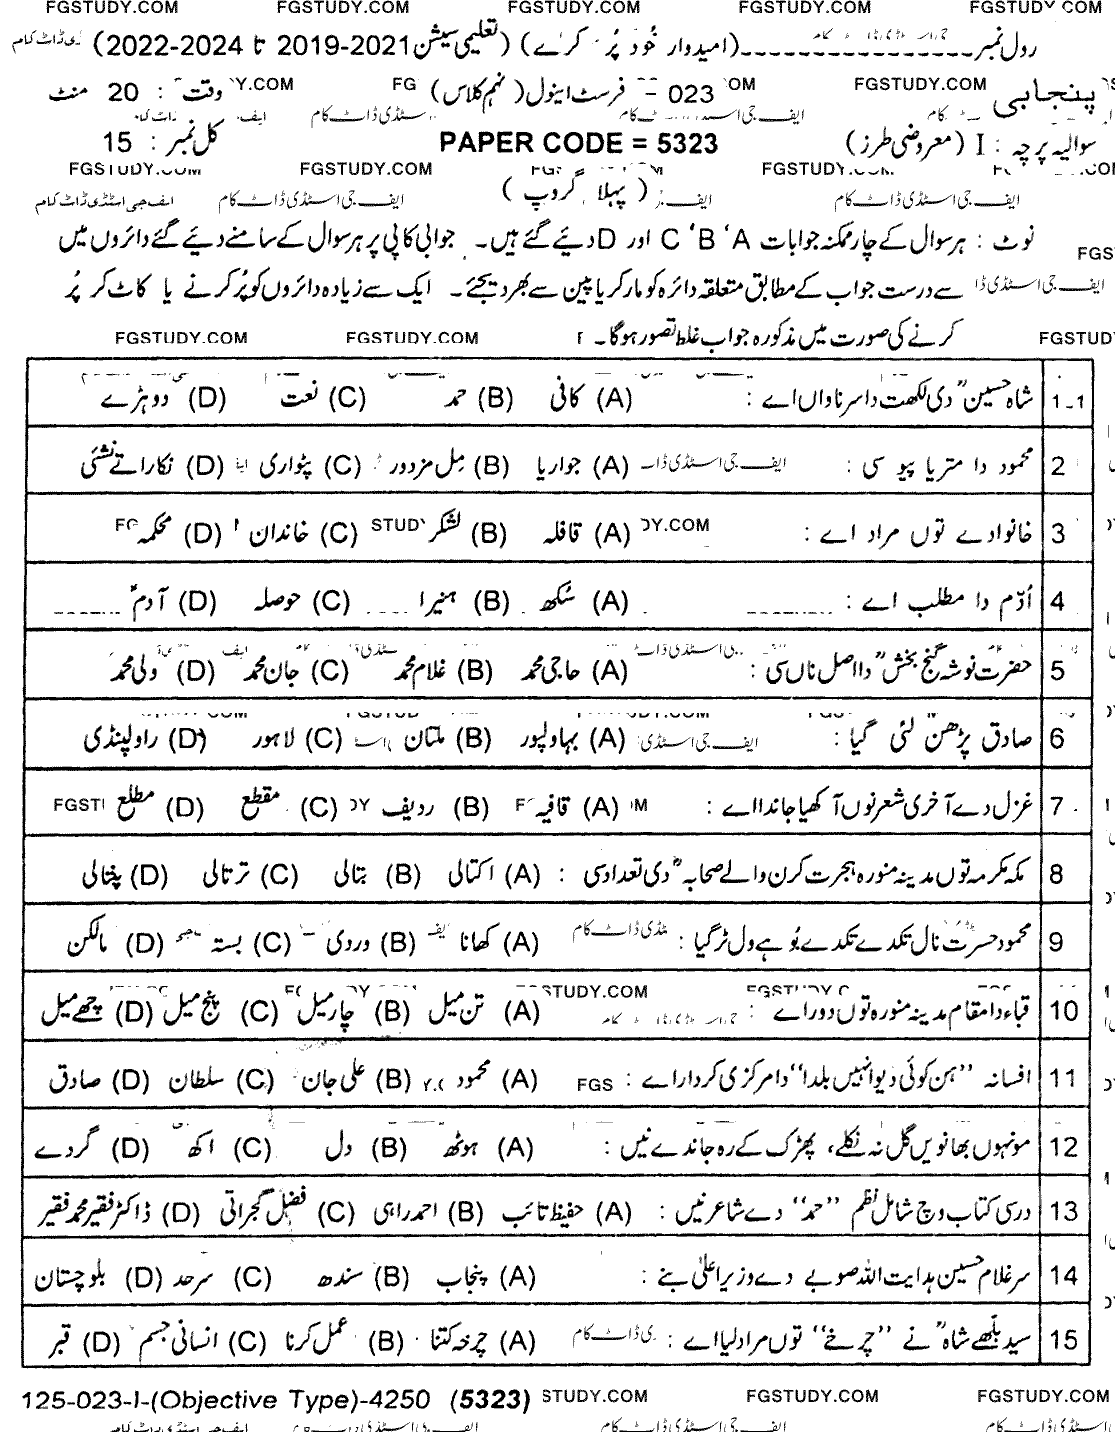 FGSTUDY.COM FGSTUDY.COM FGSTUDY.COM FGSTUDY.COM FGSTUDY.COM
رول نمبر ------------------ (امیدوار خود پُر کرے) (تعلیمی سیشن 2021-2019 تا 2024-2022)
پنجابی 023 - فرسٹ اینول (نہم کلاس) وقت : 20 منٹ
سوالیہ پرچہ : I (معروضی طرز) PAPER CODE = 5323 کل نمبر : 15
FGSTUDY.COM FGSTUDY.COM
(پہلا گروپ)
نوٹ : ہر سوال کے چار ممکنہ جوابات A ' B ' C اور D دیئے گئے ہیں۔ جوابی کاپی پر ہر سوال کے سامنے دیئے گئے دائروں میں
سے درست جواب کے مطابق متعلقہ دائرہ کو مارکر یا پین سے بھر دیجئے۔ ایک سے زیادہ دائروں کو پُر کرنے یا کاٹ کر پُر
کرنے کی صورت میں مذکورہ جواب غلط تصور ہوگا۔ FGSTUDY.COM FGSTUDY.COM
1-1 شاہ حسینؒ دی لکھت دا سرناواں اے : (A) کافی (B) حمد (C) نعت (D) دوہڑے
2 محمود دا متریا پیو سی : (A) جواریا (B) مِل مزدور (C) پٹواری (D) نکارا تے نشئی
3 خانوادے توں مراد اے : (A) قافلہ (B) لشکر (C) خاندان (D) محکمہ
4 اُدّم دا مطلب اے : (A) سُکھ (B) ہنیرا (C) حوصلہ (D) آدمؑ
5 حضرت نوشہ گنج بخشؒ دا اصل ناں سی : (A) حاجی محمد (B) غلام محمد (C) جان محمد (D) ولی محمد
6 صادق پڑھن لئی گیا : (A) بہاولپور (B) ملتان (C) لاہور (D) راولپنڈی
7 غزل دے آخری شعر نوں آکھیا جاندا اے : (A) قافیہ (B) ردیف (C) مقطع (D) مطلع
8 مکہ مکرمہ توں مدینہ منورہ ہجرت کرن والے صحابہؓ دی تعداد سی : (A) اکتالی (B) بتالی (C) ترتالی (D) پنتالی
9 محمود حسرت نال تکدے تکدے بُوہے ول ٹر گیا : (A) کھانا (B) وردی (C) بستہ (D) مالکن
10 قباء دا مقام مدینہ منورہ توں دور اے : (A) تن میل (B) چار میل (C) پنج میل (D) چھے میل
11 افسانہ "ہن کوئی دیوا نہیں بلدا" دا مرکزی کردار اے : (A) محمود (B) علی جان (C) سلطان (D) صادق
12 مونہوں بھانویں گل نہ نکلے، پھڑک کے رہ جاندے نیں : (A) ہوٹھ (B) دل (C) اکھ (D) گردے
13 درسی کتاب وچ شامل نظم "حمد" دے شاعر نیں : (A) حفیظ تائب (B) احمد راہی (C) فضل گجراتی (D) ڈاکٹر فقیر محمد فقیر
14 سر غلام حسین ہدایت اللہ صوبے دے وزیراعلیٰ بنے : (A) پنجاب (B) سندھ (C) سرحد (D) بلوچستان
15 سید بلھے شاہؒ نے "چرخے" توں مراد لیا اے : (A) چرخہ کتنا (B) عمل کرنا (C) انسانی جسم (D) قبر
125-023-I-(Objective Type)-4250 (5323) STUDY.COM FGSTUDY.COM FGSTUDY.COM